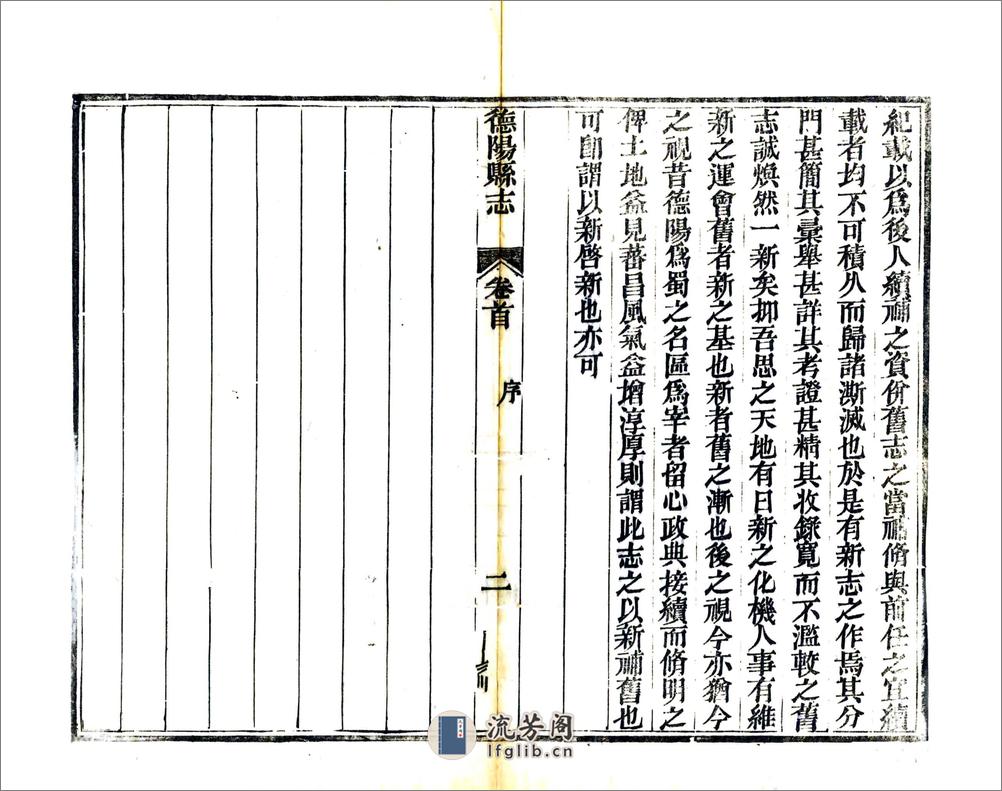 紀載以爲後人續補之資併舊志之當補脩與前任之宜續
載者均不可積久而歸諸澌滅也於是有新志之作焉其分
門甚簡其彙舉甚詳其考證甚精其收錄寬而不濫較之舊
志誠煥然一新矣抑吾思之天地有日新之化機人事有維
新之運會舊者新之基也新者舊之漸也後之視今亦猶今
之視昔德陽爲蜀之名區爲宰者留心政典接續而脩明之
俾土地益見蕃昌風氣益增淳厚則謂此志之以新補舊也
可卽謂以新啓新也亦可
德陽縣志 卷首 序 二
流芳阁
lfglib.cn